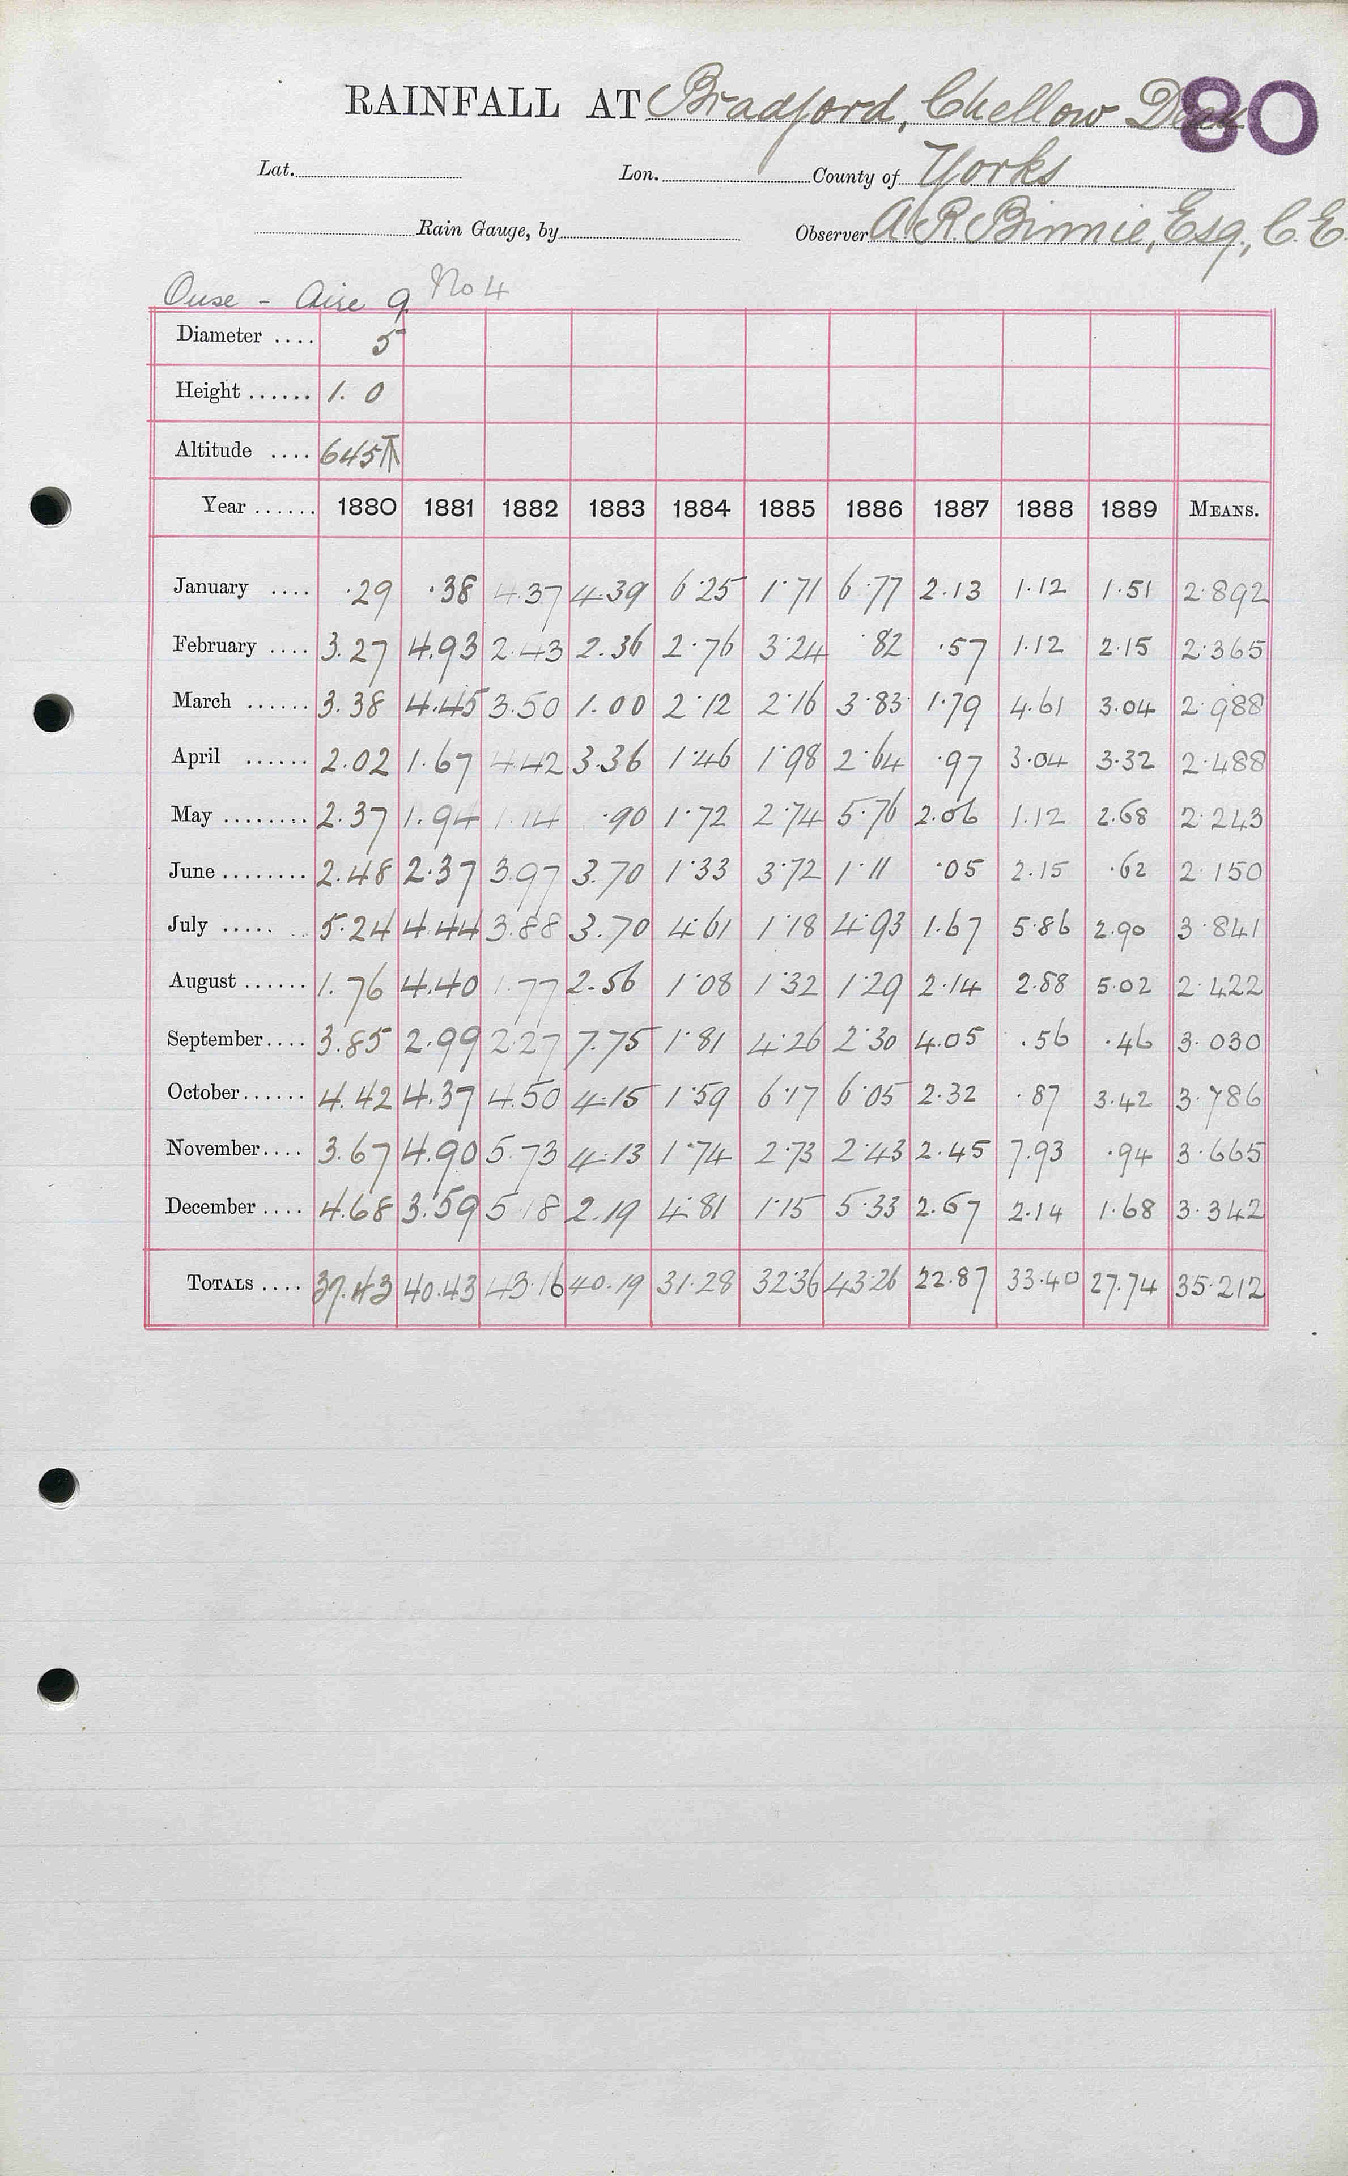 RAINFALL AT Bradford, Chellow Dean 80
Lat. Lon. County of Yorks
Rain Gauge, by Observer A R Binnie, Esq., C.E.
Ouse - Aire 9 No 4
Diameter .... 5
Height ...... 1. 0
Altitude .... 645
Year ...... 1880 1881 1882 1883 1884 1885 1886 1887 1888 1889 MEANS.
January .... .29 .38 4.37 4.39 6.25 1.71 6.77 2.13 1.12 1.51 2.892
February .... 3.27 4.93 2.43 2.36 2.76 3.24 .82 .57 1.12 2.15 2.365
March ...... 3.38 4.45 3.50 1.00 2.12 2.16 3.83 1.79 4.61 3.04 2.988
April ...... 2.02 1.67 4.42 3.36 1.46 1.98 2.64 .97 3.04 3.32 2.488
May ........ 2.37 1.94 1.14 .90 1.72 2.74 5.76 2.06 1.12 2.68 2.243
June ........ 2.48 2.37 3.97 3.70 1.33 3.72 1.11 .05 2.15 .62 2.150
July ...... 5.24 4.44 3.88 3.70 4.61 1.18 4.93 1.67 5.86 2.90 3.841
August ...... 1.76 4.40 1.77 2.56 1.08 1.32 1.29 2.14 2.88 5.02 2.422
September .... 3.85 2.99 2.27 7.75 1.81 4.26 2.30 4.05 .56 .46 3.030
October ...... 4.42 4.37 4.50 4.15 1.59 6.17 6.05 2.32 .87 3.42 3.786
November .... 3.67 4.90 5.73 4.13 1.74 2.73 2.43 2.45 7.93 .94 3.665
December .... 4.68 3.59 5.18 2.19 4.81 1.15 5.33 2.67 2.14 1.68 3.342
TOTALS .... 37.43 40.43 43.16 40.19 31.28 32.36 43.26 22.87 33.40 27.74 35.212